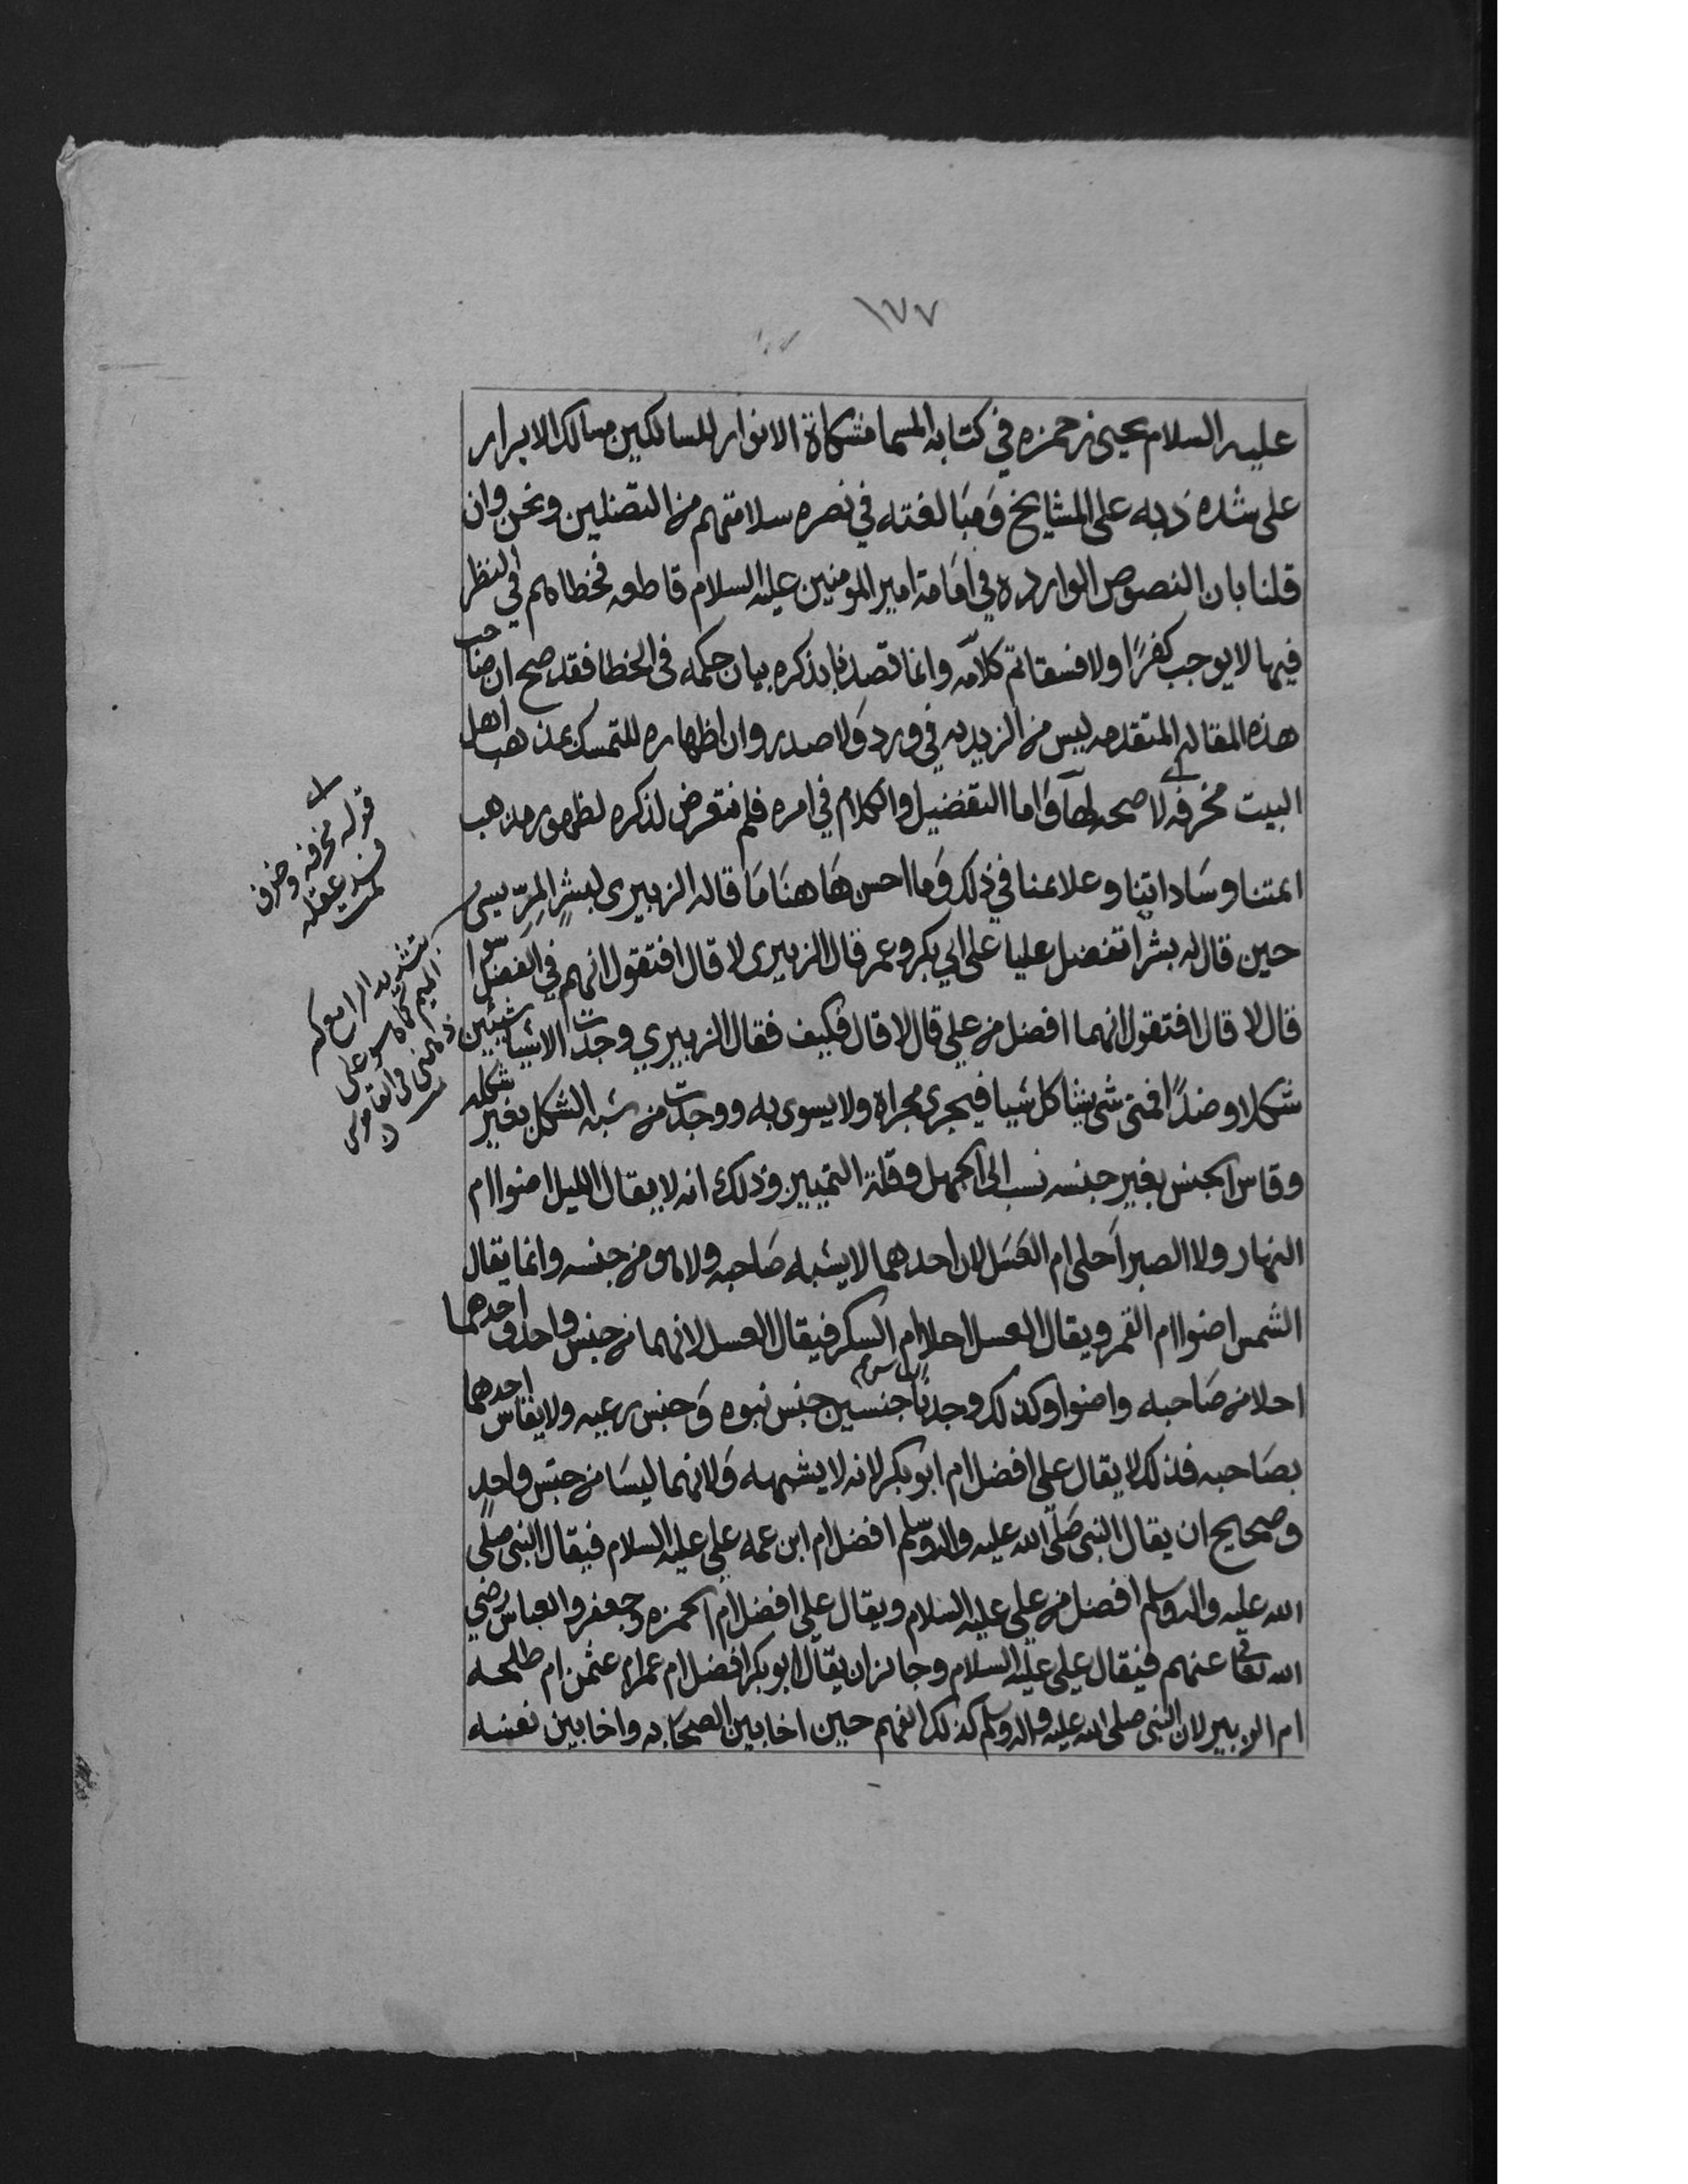 ١٧٧
عليه السلام يحيى بن حمزه في كتابه المسما مشكاة الانوار للسالكين مسالك الابرار
على شده ذبه على المشايخ ومبالغته في نصره سلامتهم من التضليل ونحن وان
قلنا بان النصوص الوارده في امامة امير المومنين عليه السلام قاطعه فخطاهم في النظر
فيها لا يوجب كفرًا ولا فسقا تم كلامه وانما قصدنا بذكره بيان حكمه في الخطا فقد صح ان صاحب
هذه المقاله المتقدمه ليس من الزيديه في ورد ولا صدر وان اظهاره للتمسك بمذهب اهل
البيت مخرفه لا صحه لها واما التفضيل والكلام في امره فلم نتعرض لذكره لظهور مذهب
ايمتنا وساداتنا وعلامنا في ذلك وما احسن هاهنا ما قاله الزبيري لبشر المرّيسي
حين قال له بشر اتفضل عليا على ابي بكر وعمر قال الزبيرى لا قال افتقول انهم في الفضل سوا
قال لا قال افتقول انهما افضل من علي قال لا قال فكيف فقال الزبيري وجدت الاشيا شيئين
شكلا وضدًا فمتى شى يشاكل شيا فيجرى مجراه ولا يسوى به ووجدت من شبه الشكل بغير شكله
وقاس الجنس بغير جنسه نسب الى الجهل وقلة التمييز وذلك انه لا يقال الليل اضوا ام
النهار ولا الصبر احلى ام العسل لان احدهما لا يشبه صاحبه ولا هو من جنسه وانما يقال
الشمس اضوا ام القمر ويقال العسل احلا ام السكر فيقال العسل لانهما من جنس واحد واحدهما
احلا من صاحبه واضوا وكذلك وجدنا جنسين جنس نبوه وجنس رعيه ولا يقاس احدهما
بصاحبه فذلك لا يقال علي افضل ام ابو بكر لانه لا يشبهه ولانهما ليسا من جنس واحدٍ
وصحيح ان يقال النبي صلى الله عليه واله وسلم افضل ام ابن عمه علي عليه السلام فيقال النبي صلى
الله عليه واله وسلم افضل من علي عليه السلام ويقال علي افضل ام الحمزه وجعفر والعباس رضي
الله تعالى عنهم فيقال علي عليه السلام وجايز ان يقال ابو بكر افضل ام عمر ام عثمن ام طلحه
ام الزبير لان النبي صلى الله عليه واله وسلم كذلك الفهم حين اخا بين الصحابه واخا بين نفسه
قوله مخرفه وخرف
فسد عقله
تمت
بتشديد الراء مع كسر
الميم
في القاموس